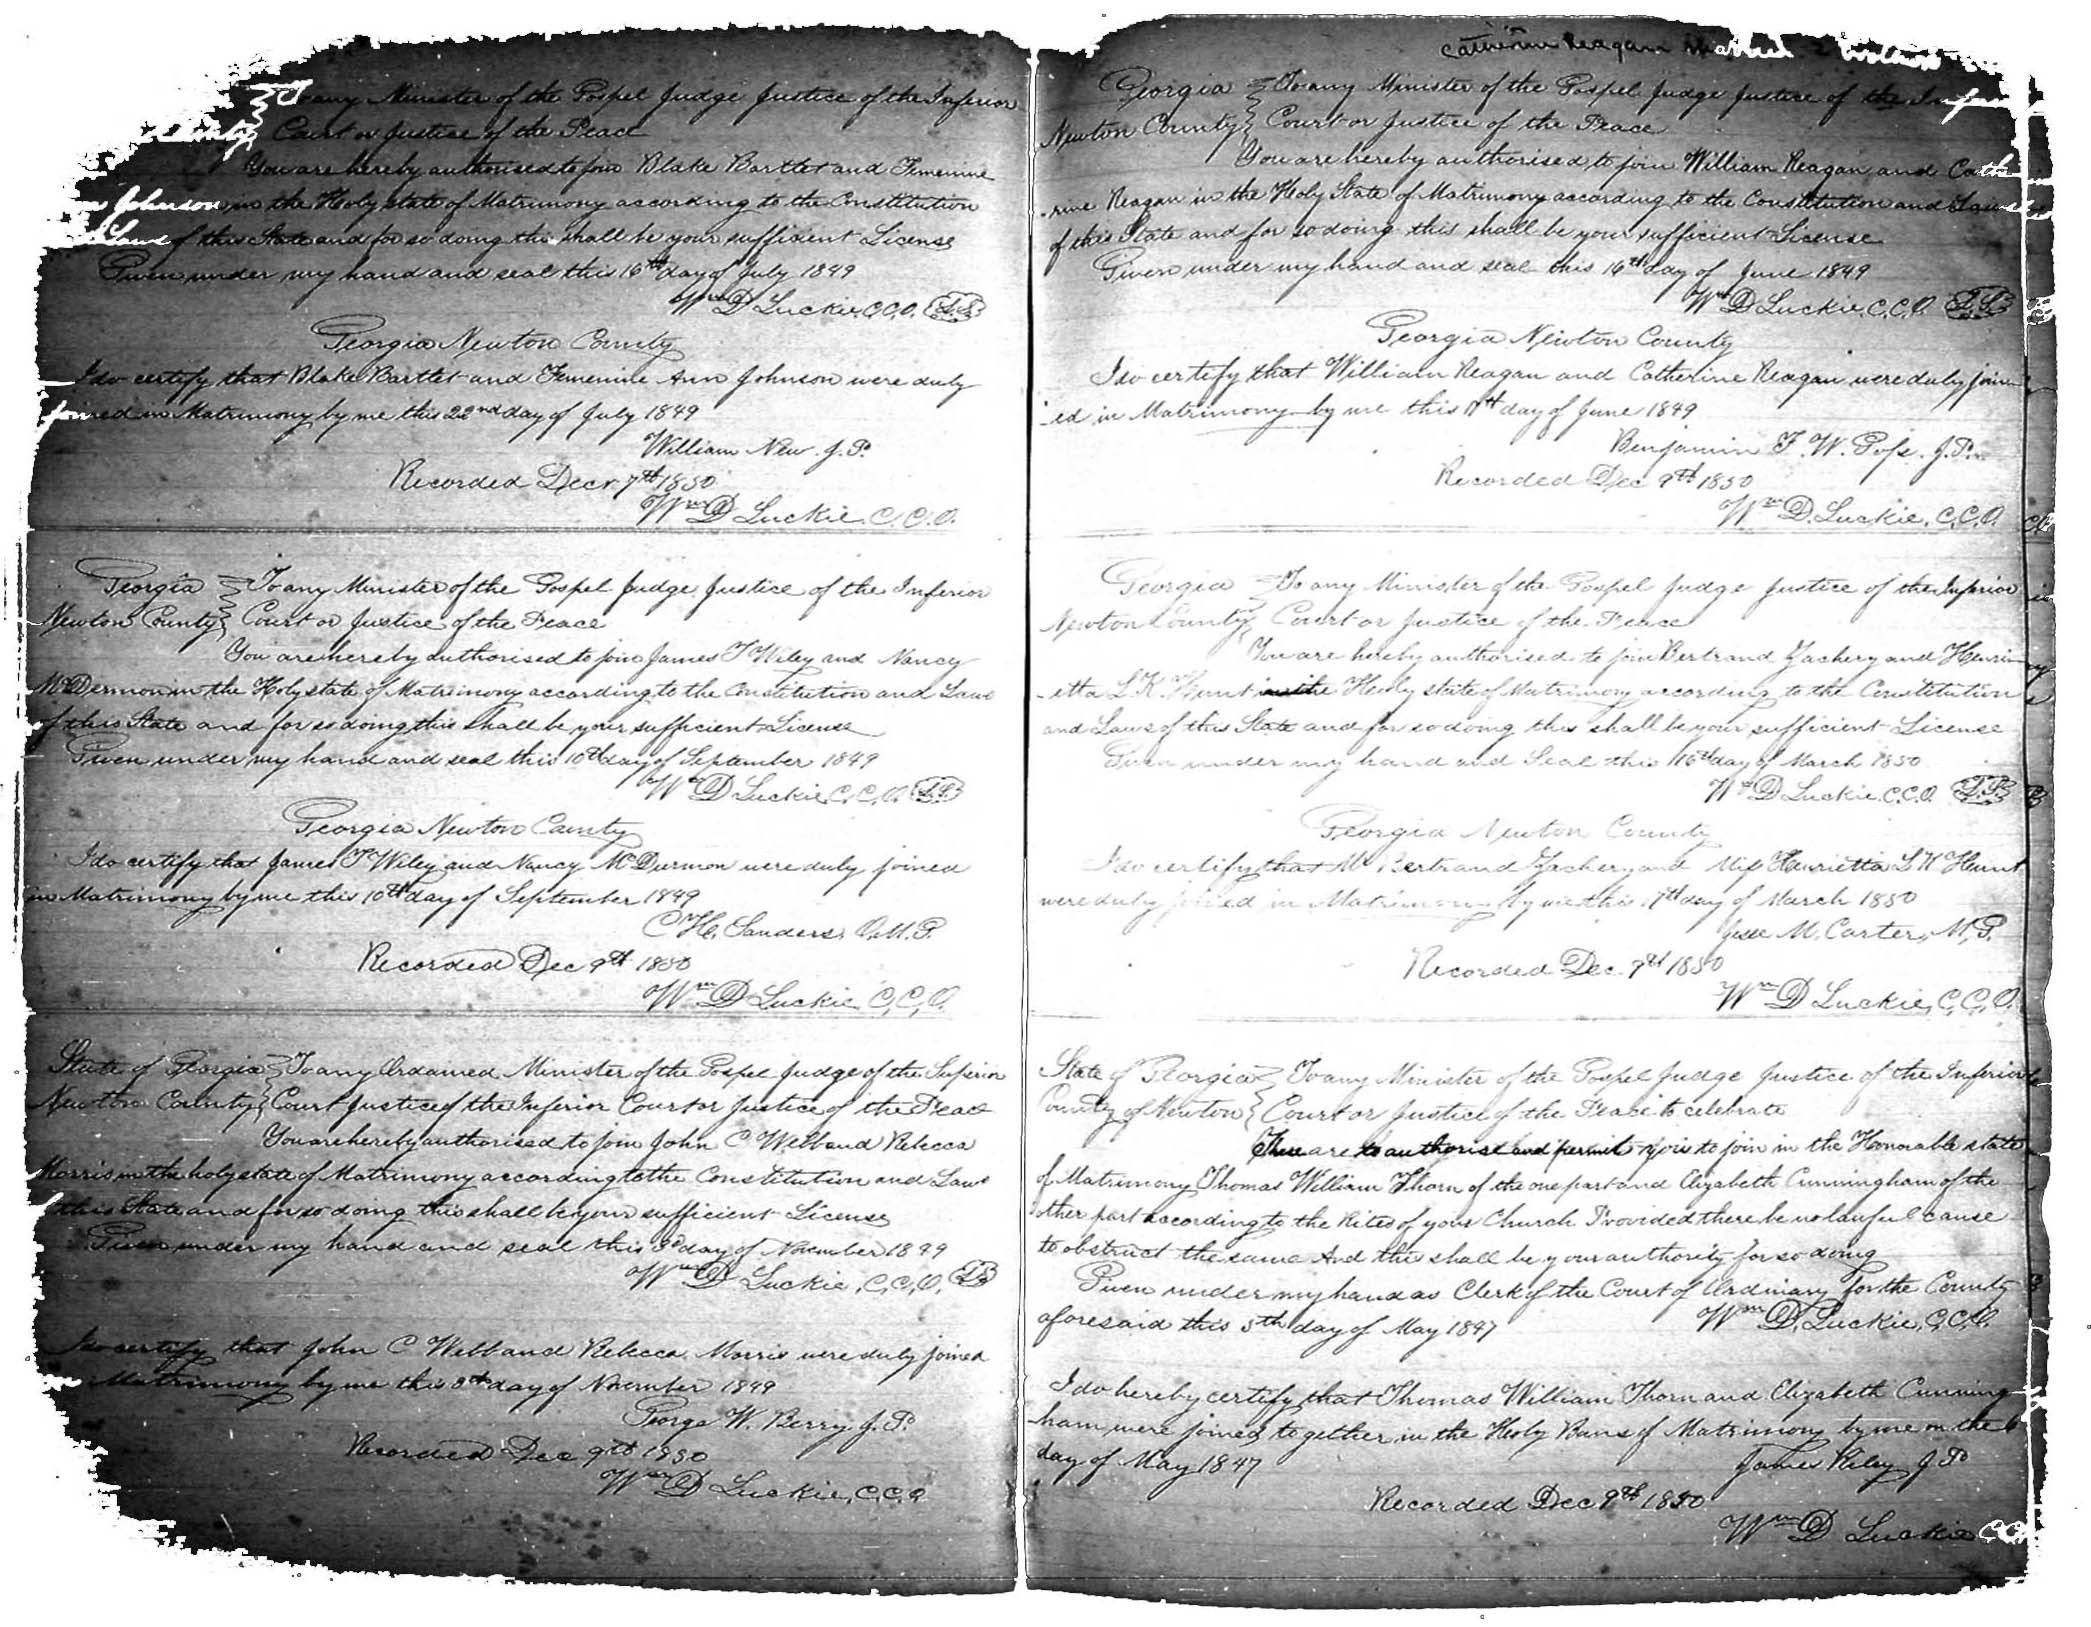 To any Minister of the Gospel Judge Justice of the Inferior
County Court or Justice of the Peace
You are hereby authorised to join Blake Bartlet and Femenine
Johnson in the Holy state of Matrimony according to the Constitution
Laws of this State and for so doing this shall be your sufficient License
Given under my hand and seal this 16th day of July 1849
Wm D Luckie C.C.O. L.S.
Georgia Newton County
I do certify that Blake Bartlet and Femenine Ann Johnson were duly
joined in Matrimony by me this 22nd day of July 1849
William New J.P.
Recorded Decr 7th 1850
Wm D Luckie C.C.O.
Georgia To any Minister of the Gospel Judge Justice of the Inferior
Newton County Court or Justice of the Peace
You are hereby authorised to join James T Wiley and Nancy
McDermon in the Holy state of Matrimony according to the Constitution and Laws
of this State and for so doing this shall be your sufficient License
Given under my hand and seal this 10th day of September 1849
Wm D Luckie C.C.O. L.S.
Georgia Newton County
I do certify that James T Wiley and Nancy McDurmon were duly joined
in Matrimony by me this 10th day of September 1849
C H Sanders O.M.G.
Recorded Dec 9th 1850
Wm D Luckie C.C.O.
State of Georgia To any Ordained Minister of the Gospel Judge of the Superior
Newton County Court Justice of the Inferior Court or Justice of the Peace
You are hereby authorised to join John C Webb and Rebecca
Morris in the holy state of Matrimony according to the Constitution and Laws
this State and for so doing this shall be your sufficient License
Given under my hand and seal this 3d day of November 1849
Wm D Luckie, C.C.O. L.S.
I do certify that John C Webb and Rebecca Morris were duly joined
Matrimony by me this 3d day of November 1849
George W. Berry J.P.
Recorded Dec 9th 1850
Wm D Luckie, C.C.O
Catherine Reagan Married
Georgia To any Minister of the Gospel Judge Justice of the Inferior
Newton County Court or Justice of the Peace
You are hereby authorised to join William Reagan and Cathe
-rine Reagan in the Holy State of Matrimony according to the Constitution and Laws
of this State and for so doing this shall be your sufficient License
Given under my hand and seal this 16th day of June 1849
Wm D Luckie, C.C.O. L.S.
Georgia Newton County
I do certify that William Reagan and Catherine Reagan were duly join
-ed in Matrimony by me this 17th day of June 1849
Benjamin F. W. J.P.
Recorded Dec 9th 1850
Wm D. Luckie, C.C.O.
Georgia To any Minister of the Gospel Judge Justice of the Inferior
Newton County Court or Justice of the Peace
You are hereby authorised to join Bertrand Zachery and Henri
-etta L. K. Hunt in the Holy state of Matrimony according to the Constitution
and Laws of this State and for so doing this shall be your sufficient License
Given under my hand and Seal this 16th day of March 1850
Wm D Luckie C.C.O. L.S.
Georgia Newton County
I do certify that Mr Bertrand Zachery and Miss Henrietta L K Hunt
were duly joined in Matrimony by me this 17th day of March 1850
Jesse M. Carter, M.G.
Recorded Dec. 7th 1850
Wm D Luckie, C.C.O.
State of Georgia To any Minister of the Gospel Judge Justice of the Inferior
County of Newton Court or Justice of the Peace to celebrate
These are to authorise and permit you to join in the Honorable state
of Matrimony Thomas William Thorn of the one part and Elizabeth Cunningham of the
other part according to the Rites of your Church Provided there be no lawful cause
to obstruct the same And this shall be your authority for so doing
Given under my hand as Clerk of the Court of Ordinary for the County
aforesaid this 5th day of May 1847 Wm D. Luckie, C.C.O.
I do hereby certify that Thomas William Thorn and Elizabeth Cunning
-ham were joined together in the Holy Bans of Matrimony by me on the 6
day of May 1847 James Riley J.P.
Recorded Dec 9th 1850
Wm D Luckie C.C.